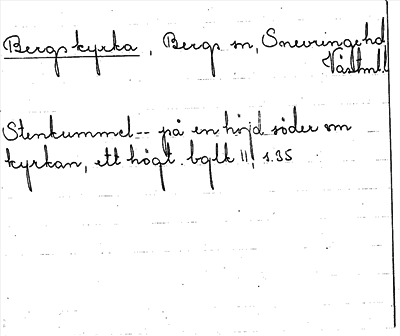 Bergs kyrka, Bergs sn, Snevringe hd
Västml.
Stenkummel-- på en höjd söder om
kyrkan, ett högt. bglk II! s.35